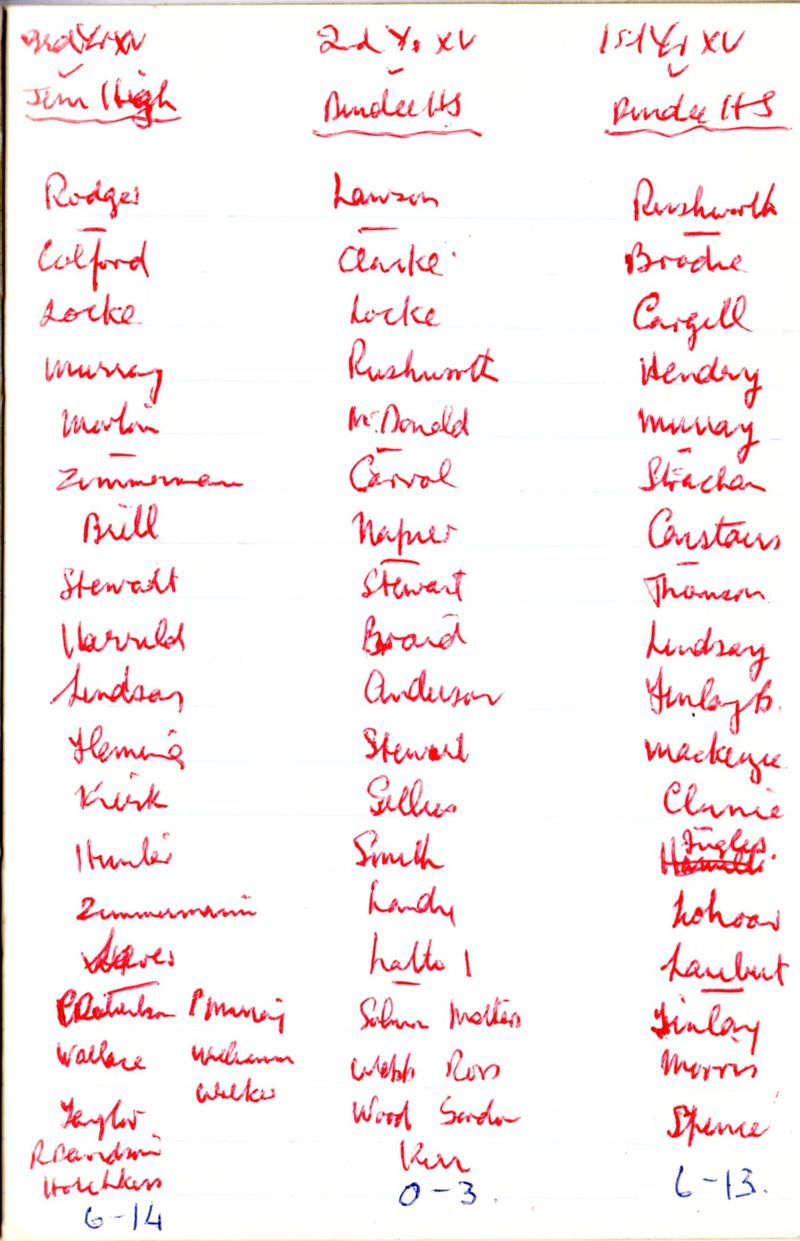 3rd Yr XV 2nd Yr XV 1st Yr XV
High Dundee HS Dundee HS
Rodger Lawson Rushworth
Colford Clarke Brodie
Locke Locke Cargill
Murray Rushworth Hendry
Martin McDonald Murray
Zimmerman Carrol Strachan
Brill Napier Carstairs
Stewart Stewart Thomson
Harrild Braid Lindsay
Lindsay Anderson Finlay B.
Fleming Stewart Mackenzie
Kirk Gillies
Hunter Smith Inglis
Zimmermann
Latto 1 Lambert
P Murray Finlay
Wallace Webb Ross Morris
Taylor Walker Wood Spence
R Davidson Kerr
Hotchkiss
6-14 0-3. 6-13.